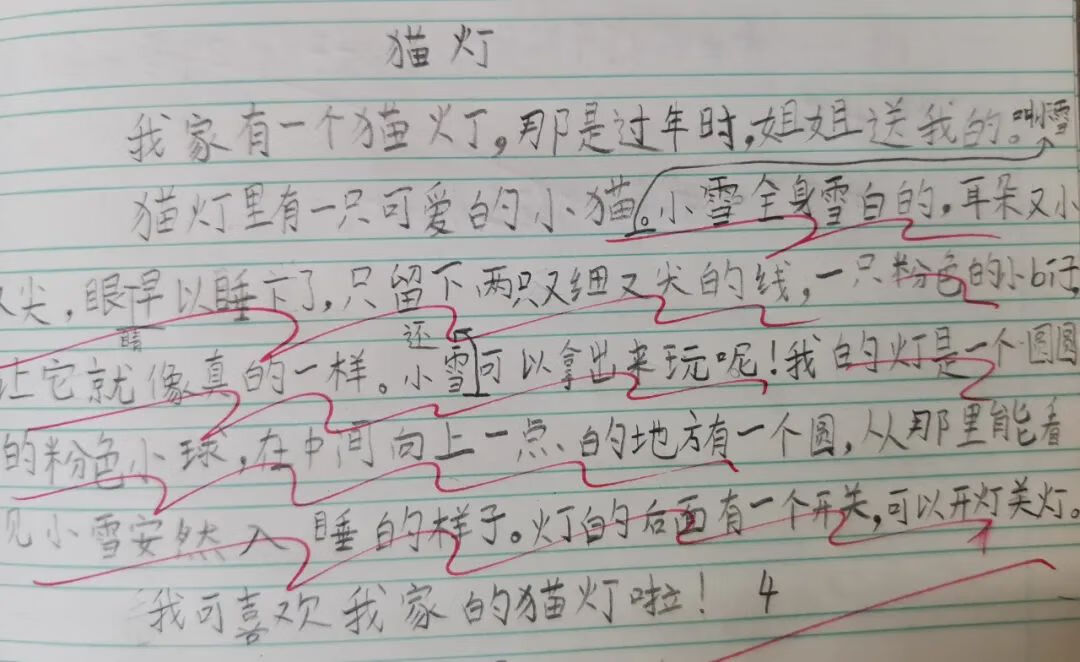 猫灯
我家有一个猫灯,那是过年时,姐姐送我的。叫小雪
猫灯里有一只可爱的小猫。小雪全身雪白的,耳朵又小
又尖,眼早以睡下了,只留下两只又细又尖的线,一只粉色的小b行,
睛
还
让它就像真的一样。小雪可以拿出来玩呢!我的灯是一个圆圆
的粉色小球,在中间向上一点、的地方有一个圆,从那里能看
见小雪安然入睡的样子。灯的后面有一个开关,可以开灯关灯。
我可喜欢我家的猫灯啦! 4